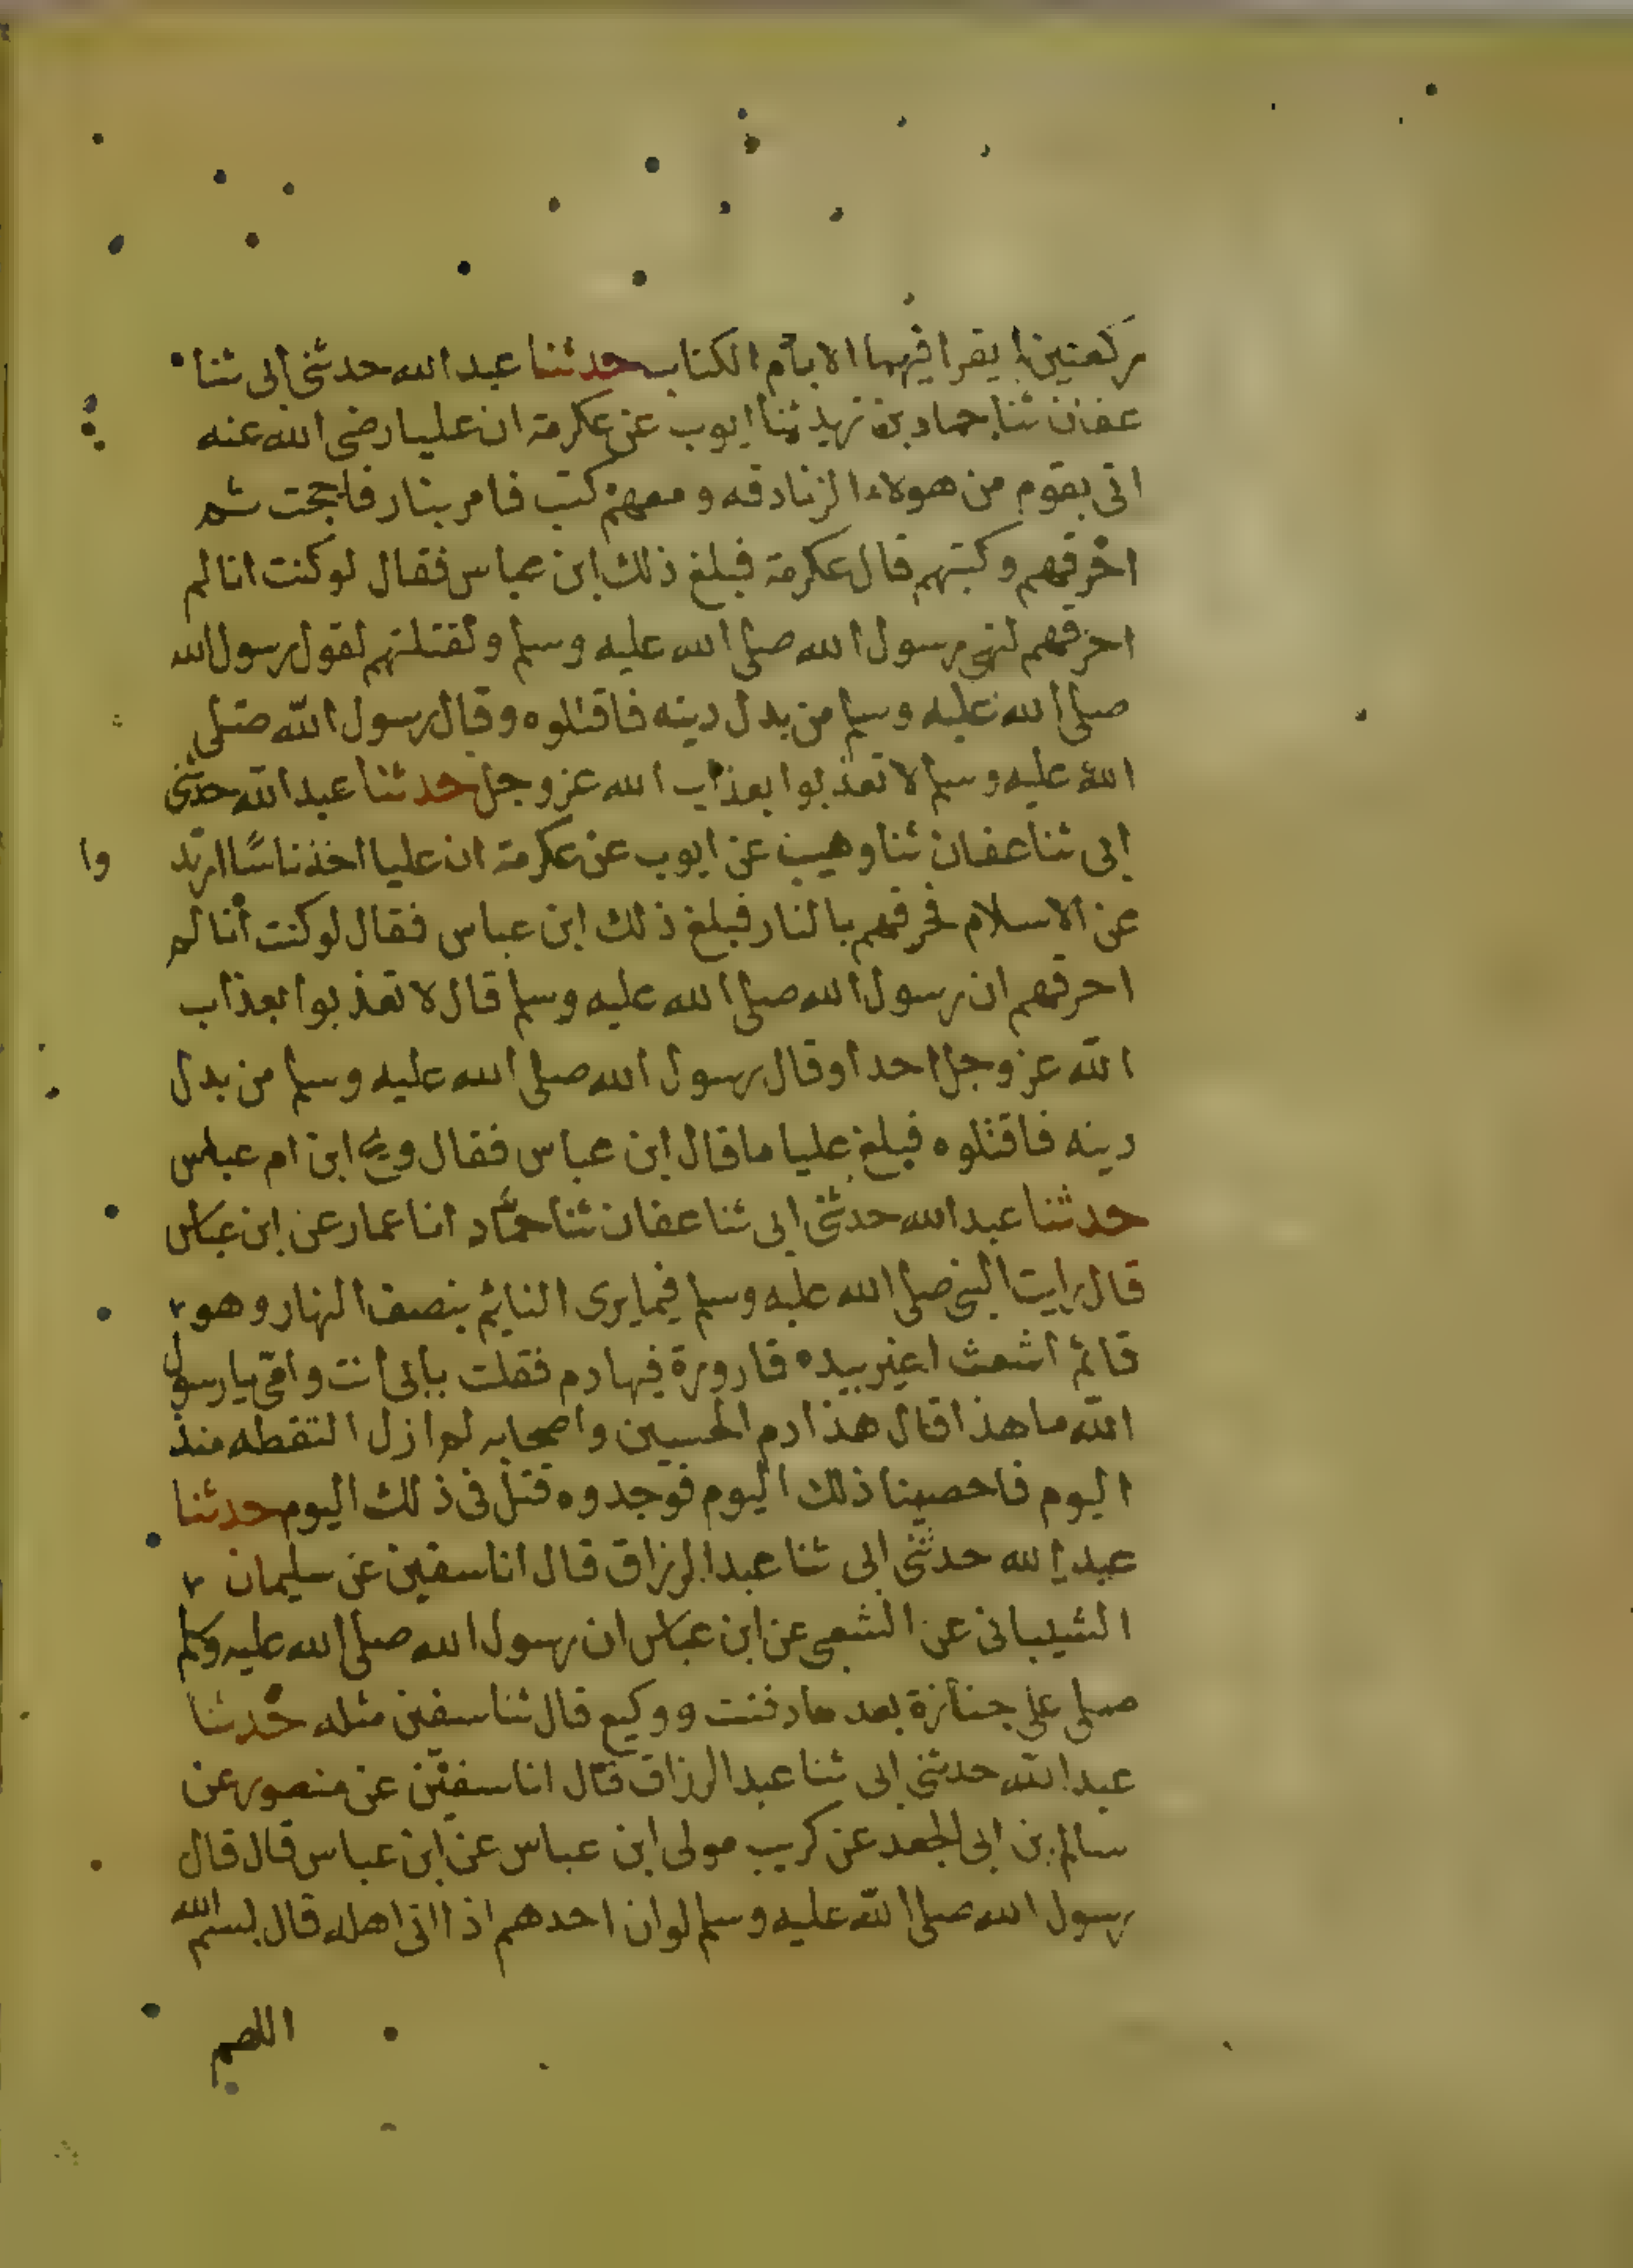 ركعتين لم يقرا فيهما الا بام الكتاب حدثنا عبد الله حدثنى ابى ثنا
عفان ثنا حماد بن زيد ثنا ايوب عن عكرمة ان عليا رضى الله عنه
اتى بقوم من هولاء الزنادقه ومعهم كتب فامر بنار فاججت ثم
احرقهم وكتبهم قال عكرمة فبلغ ذلك ابن عباس فقال لو كنت انا لم
احرقهم لنهى رسول الله صلى الله عليه وسلم ولقتلتهم لقول رسول الله
صلى الله عليه وسلم من بدل دينه فاقتلوه وقال رسول الله صلى
الله عليه وسلم لا تعذبوا بعذاب الله عز وجل حدثنا عبد الله حدثنى
ابى ثنا عفان ثنا وهيب عن ايوب عن عكرمة ان عليا اخذ ناسًا ارتد
وا
عن الاسلام فحرقهم بالنار فبلغ ذلك ابن عباس فقال لو كنت أنا لم
احرقهم ان رسول الله صلى الله عليه وسلم قال لا تعذبوا بعذاب
الله عز وجل احدا وقال رسول الله صلى الله عليه وسلم من بدل
دينه فاقتلوه فبلغ عليا ما قال ابن عباس فقال ويح ابن ام عباس
حدثنا عبد الله حدثنى ابى ثنا عفان ثنا حمّاد انا عمار عن ابن عباس
قال رايت النبى صلى الله عليه وسلم فيما يرى النايم بنصف النهار وهو
قائم اشعث اغبر بيده قارورة فيها دم فقلت بابى أنت وامّى يا رسول
الله ما هذا قال هذا دم الحسين واصحابه لم ازل التقطه منذ
اليوم فاحصينا ذلك اليوم فوجدوه قتل فى ذلك اليوم حدثنا
عبد الله حدثنى ابى ثنا عبد الرزاق قال انا سفين عن سليمان
الشيبانى عن الشعبى عن ابن عباس ان رسول الله صلى الله عليه وسلم
صلى على جنازة بعد ما دفنت ووكيع قال ثنا سفين مثله حدثنا
عبد الله حدثنى ابى ثنا عبد الرزاق قال انا سفين عن منصور عن
سالم بن ابى الجعد عن كريب مولى ابن عباس عن ابن عباس قال قال
رسول الله صلى الله عليه وسلم لو ان احدهم اذا اتى اهله قال بسم الله
اللهم